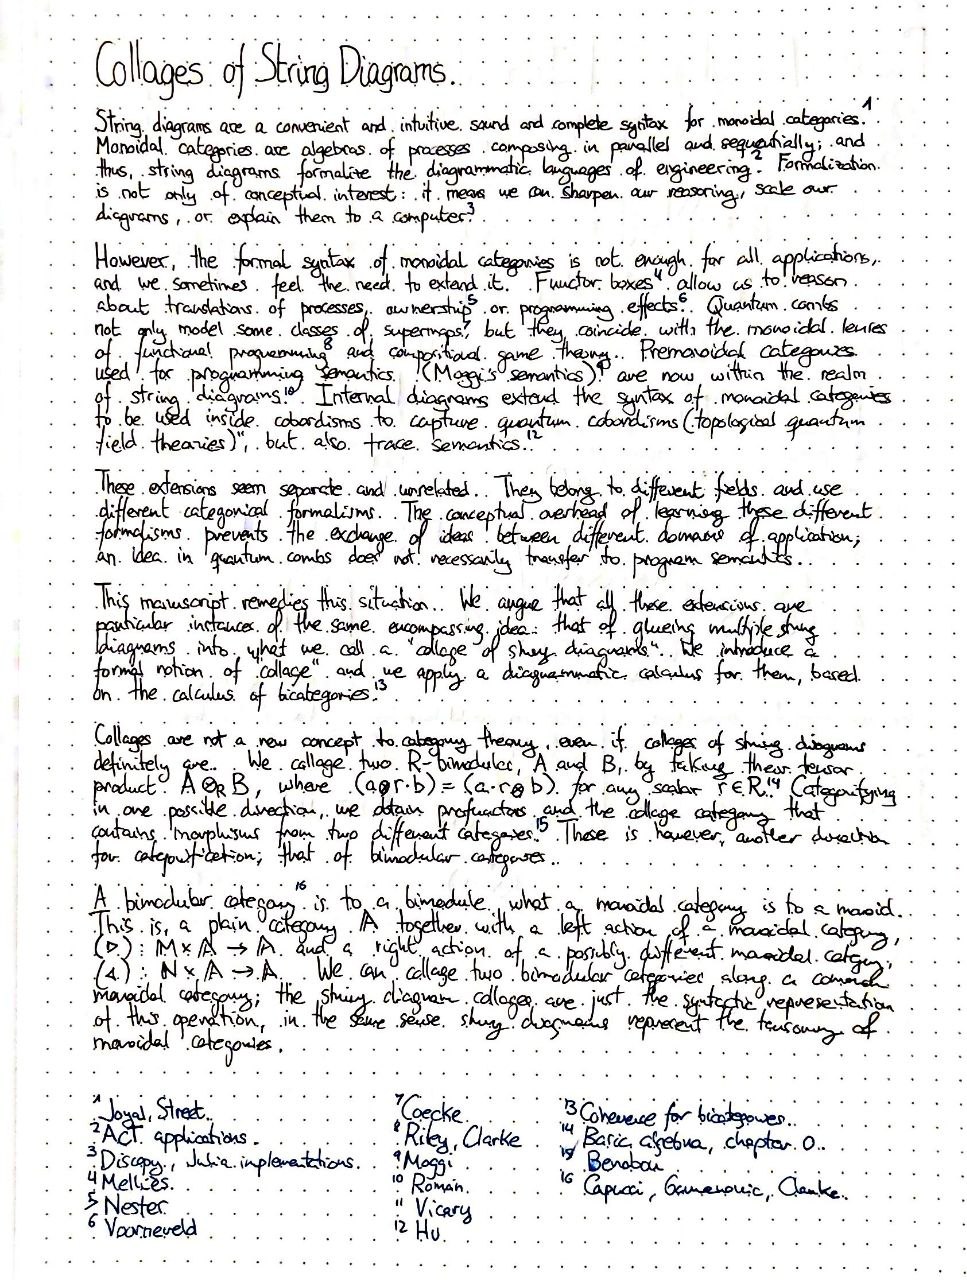 Collages of String Diagrams.
String diagrams are a convenient and intuitive sound and complete syntax for monoidal categories.¹
Monoidal categories are algebras of processes composing in parallel and sequentially; and
thus, string diagrams formalize the diagrammatic languages of engineering.² Formalization
is not only of conceptual interest: it means we can sharpen our reasoning, scale our
diagrams, or explain them to a computer³.
However, the formal syntax of monoidal categories is not enough for all applications,
and we sometimes feel the need to extend it. Functor boxes⁴ allow us to reason
about translations of processes, ownership⁵ or programming effects⁶. Quantum combs
not only model some classes of supermaps⁷, but they coincide with the monoidal lenses
of functional programming⁸ and compositional game theory. Premonoidal categories
used for programming semantics (Moggi's semantics)⁹ are now within the realm
of string diagrams¹⁰. Internal diagrams extend the syntax of monoidal categories
to be used inside cobordisms to capture quantum cobordisms (topological quantum
field theories)¹¹, but also trace semantics.¹²
These extensions seem separate and unrelated. They belong to different fields and use
different categorical formalisms. The conceptual overhead of learning these different
formalisms prevents the exchange of ideas between different domains of application;
an idea in quantum combs does not necessarily transfer to program semantics.
This manuscript remedies this situation. We argue that all these extensions are
particular instances of the same encompassing idea: that of glueing multiple string
diagrams into what we call a "collage of string diagrams". We introduce a
formal notion of "collage" and we apply a diagrammatic calculus for them, based
on the calculus of bicategories.¹³
Collages are not a new concept to category theory, even if collages of string diagrams
definitely are. We collage two R-bimodules, A and B, by taking their tensor
product A⊗ᵣB, where (a⊗r·b) = (a·r⊗b) for any scalar r∈R.¹⁴ Categorifying
in one possible direction, we obtain profunctors and the collage category that
contains morphisms from two different categories.¹⁵ There is however, another direction
for categorification; that of bimodular categories.
A bimodular category¹⁶ is to a bimodule what a monoidal category is to a monoid.
This is a plain category 𝔸 together with a left action of a monoidal category,
(▷) : M × 𝔸 → 𝔸 and a right action of a possibly different monoidal category,
(◁) : N × 𝔸 → 𝔸. We can collage two bimodular categories along a common
monoidal category; the string diagram collages are just the syntactic representation
of this operation, in the same sense string diagrams represent the tensoring of
monoidal categories.
¹ Joyal, Street.
² ACT applications.
³ Discopy, Julia implementations.
⁴ Melliès.
⁵ Nester
⁶ Voorneveld
⁷ Coecke
⁸ Riley, Clarke
⁹ Moggi
¹⁰ Román.
¹¹ Vicary
¹² Hu
¹³ Coherence for bicategories.
¹⁴ Basic algebra, chapter 0.
¹⁵ Benabou
¹⁶ Capucci, Clarke.